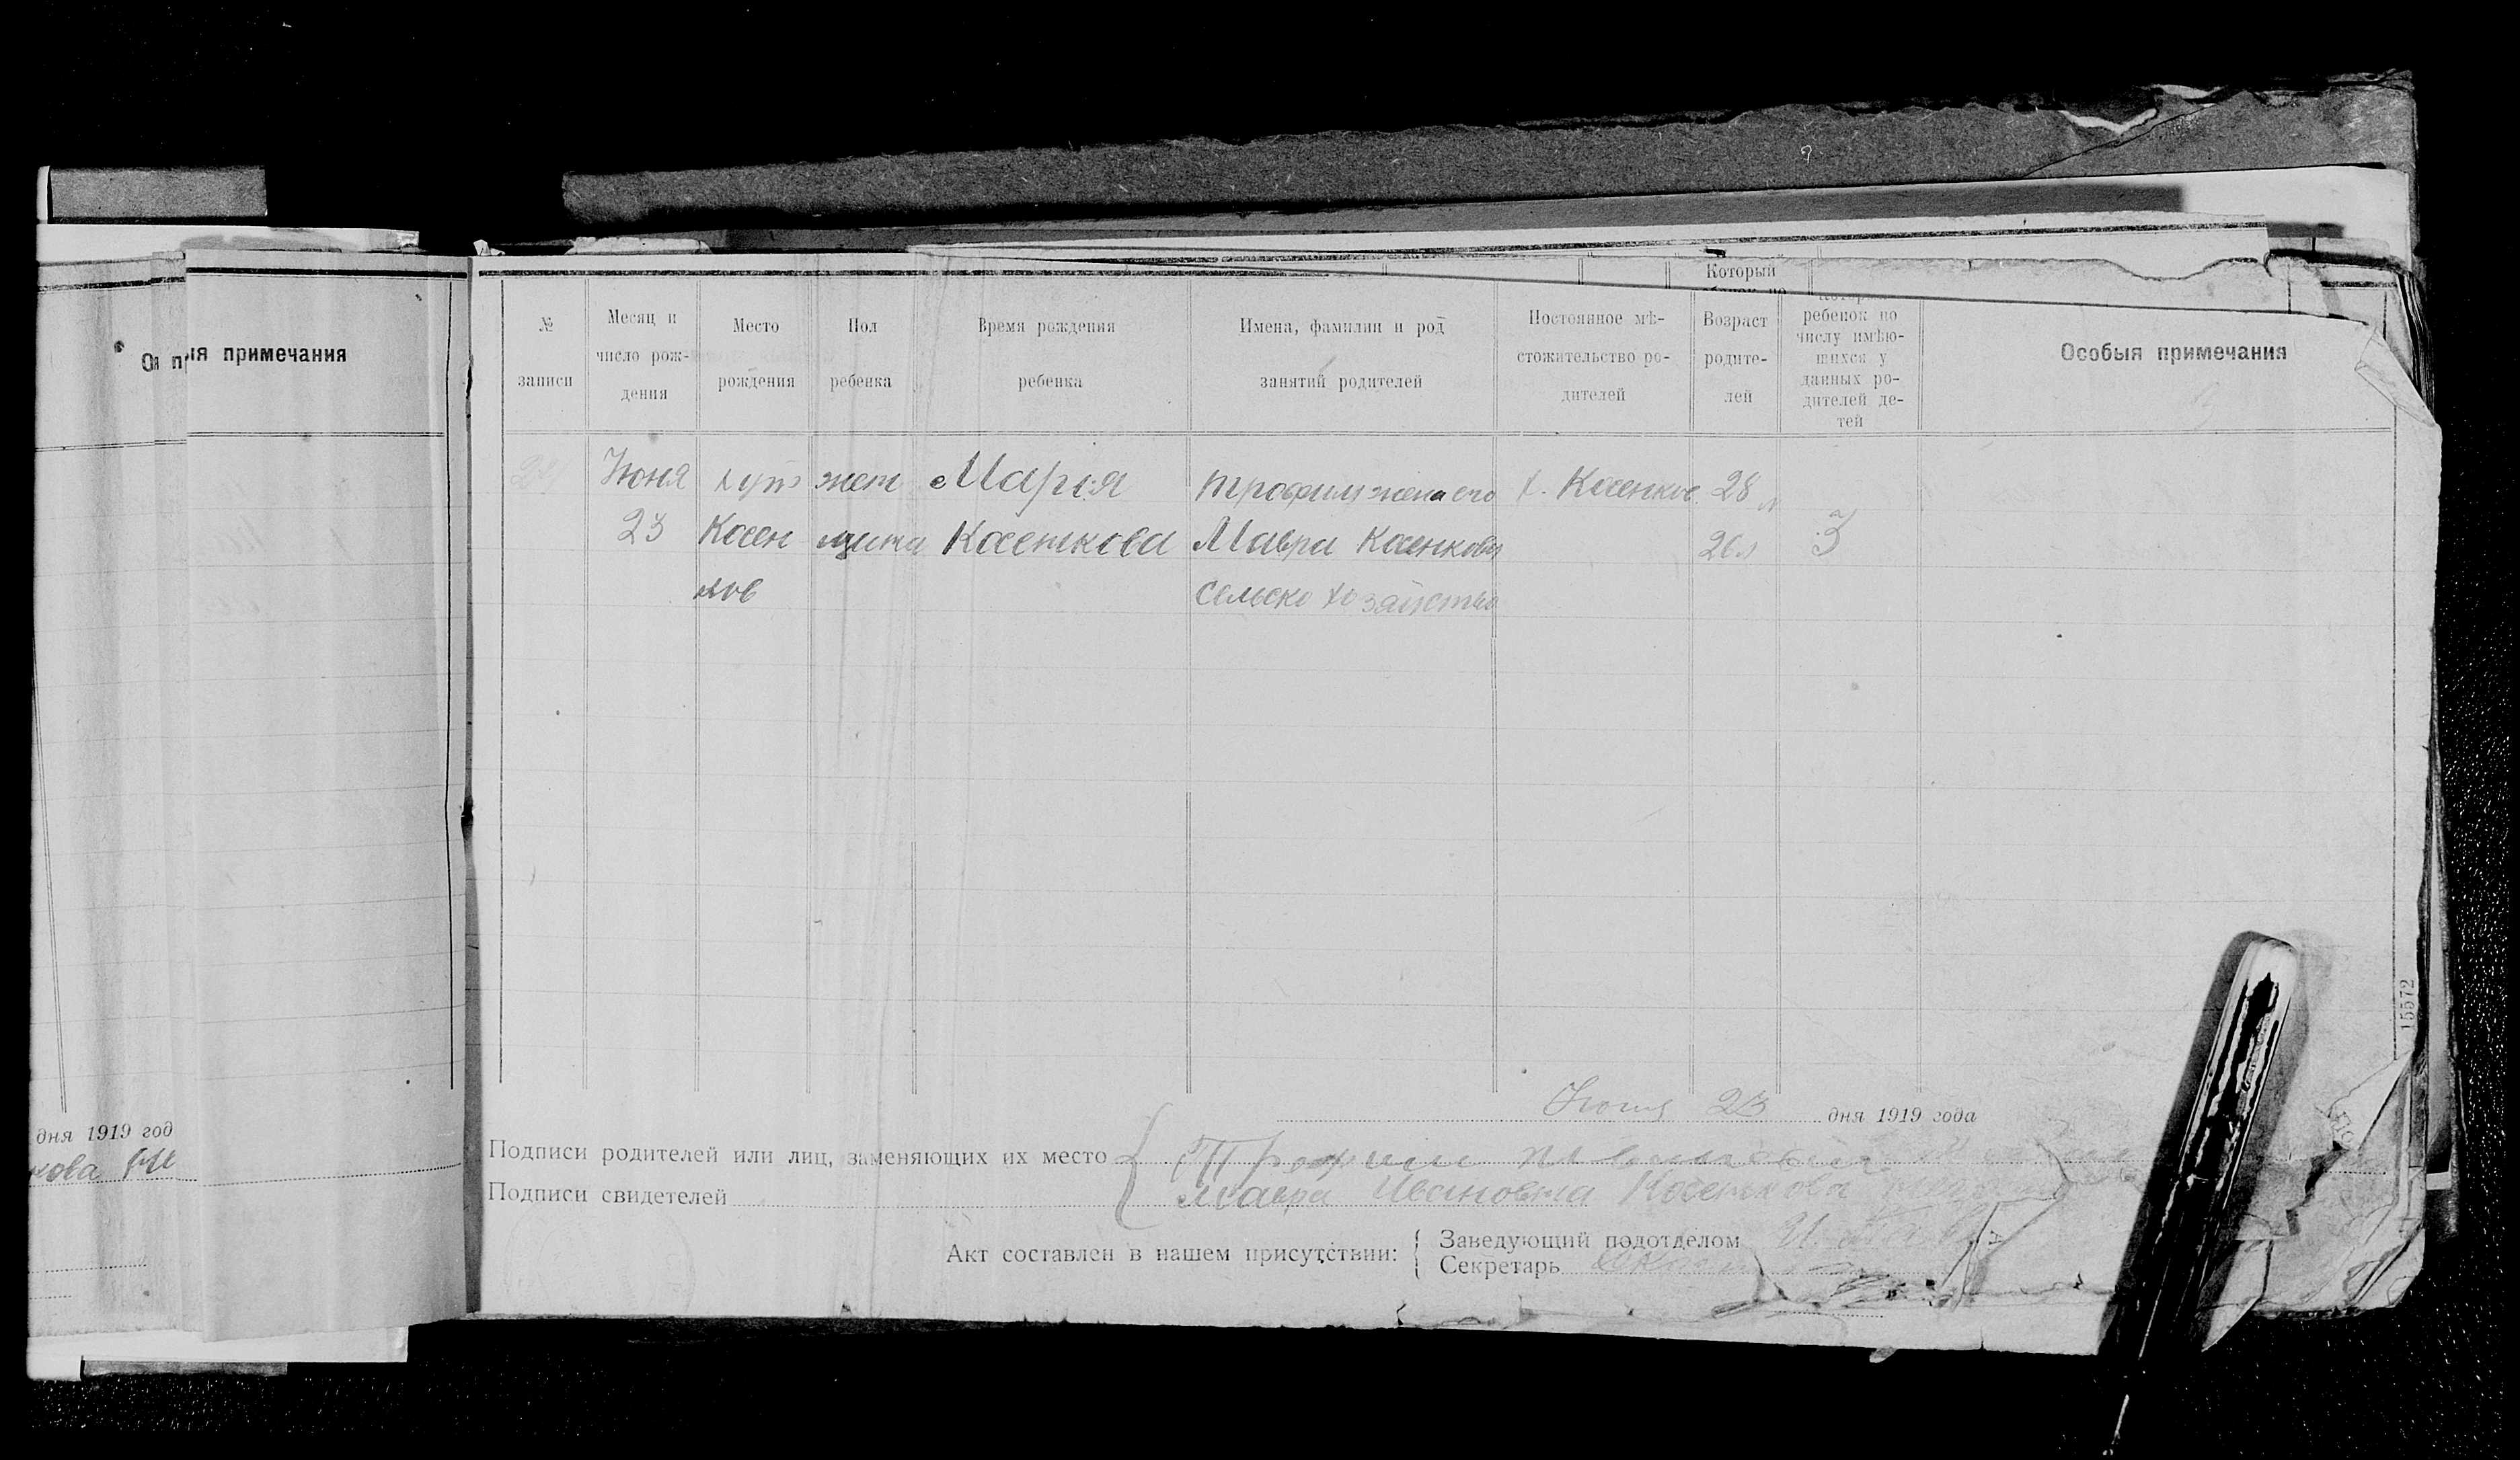 дня 1919 год
кова
ія примечания
Который
№ записи
Месяц и число рождения
Место рождения
Пол ребенка
Время рождения ребенка
Имена, фамилии и род занятий родителей
Постоянное мѣстожительство родителей
Возраст родителей
ребенок по числу имѣющихся у данных родителей детей
Особыя примечания
Июня хут жен Марія Трофим жена его х. Косенков 28
23 Косен щина Косенкова Мавра Косенковы 26 3
ков Сельско хозяйство
15572
Июня 23 дня 1919 года
Подписи родителей или лиц, заменяющих их место Трофим
Подписи свидетелей Мавра Ивановна Косенкова
Акт составлен в нашем присутствии:
Заведующий подотделом
Секретарь